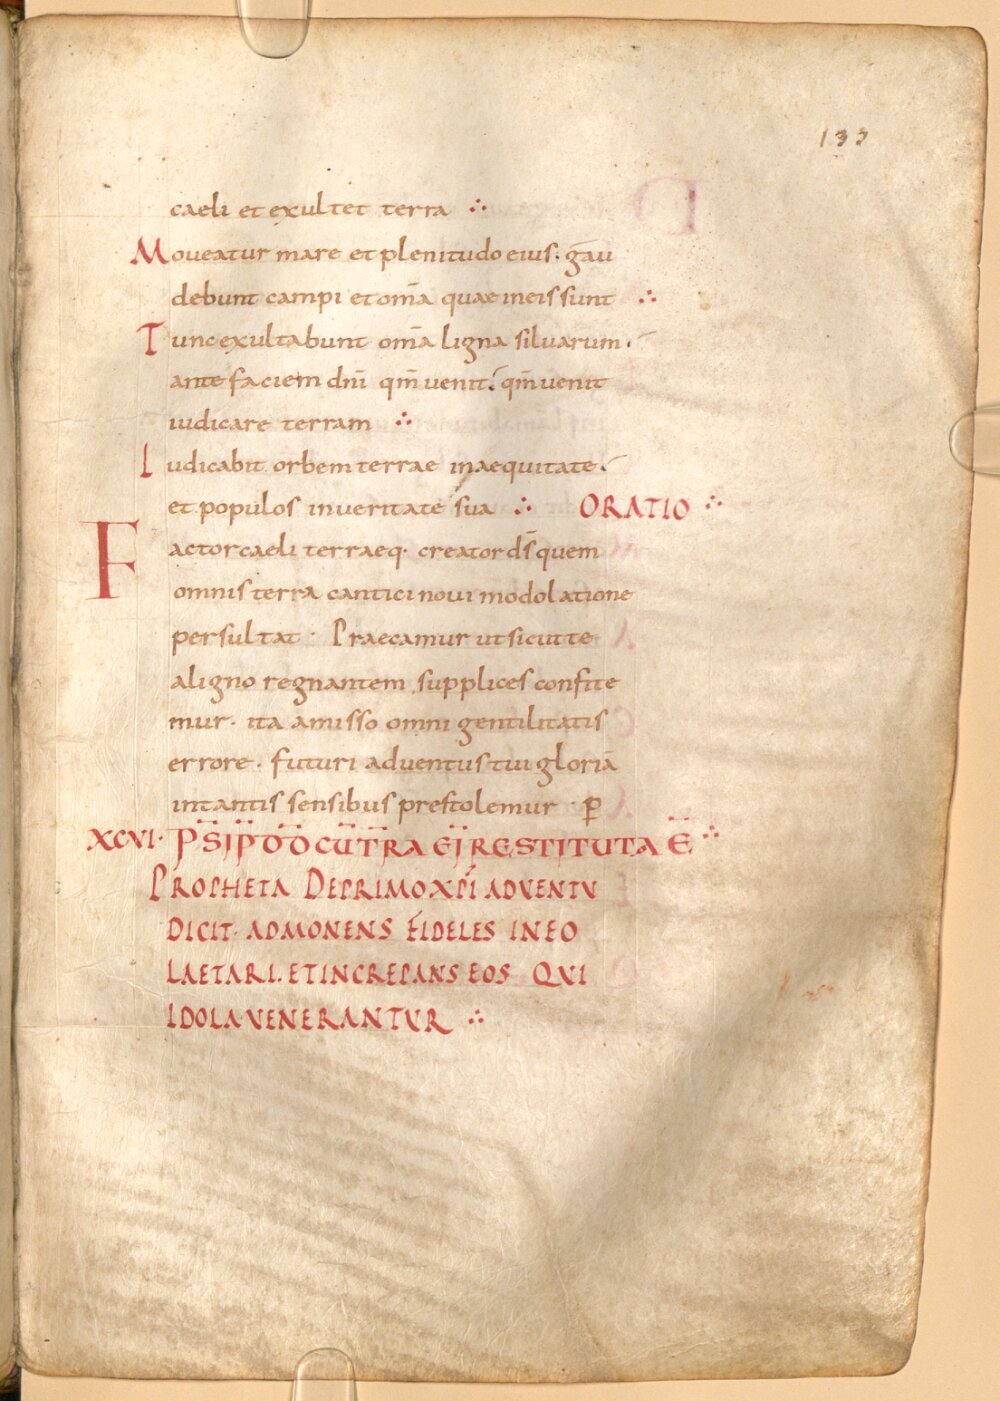 137
caeli et exultet terra ∴
Moveatur mare et plenitudo eius. gau
debunt campi et om̅a quae in eis sunt ∴
Tunc exultabunt om̅a ligna silvarum.
ante faciem dn̅i qm̅ venit. qm̅ venit
iudicare terram ∴
Iudicabit orbem terrae in aequitate.
et populos in veritate sua ∴ ORATIO ∴
Factor caeli terraeq· creator ds̅ quem
omnis terra cantici novi modolatione
persultat · Praecamur ut sicut te
a ligno regnantem supplices confite
mur· ita amisso omni gentilitatis
errore· futuri adventus tui gloria̅
intantis sensibus prestolemur · P
XCVI· PS̅ IP̅ DD̅ CU̅ TR̅RA EI̅ RESTITUTA E̅ ∴
PROPHETA DE PRIMO XPI̅ ADVENTV
DICIT· ADMONENS FIDELES IN EO
LAETARI· ET INCREPANS EOS QVI
IDOLA VENERANTUR ∴